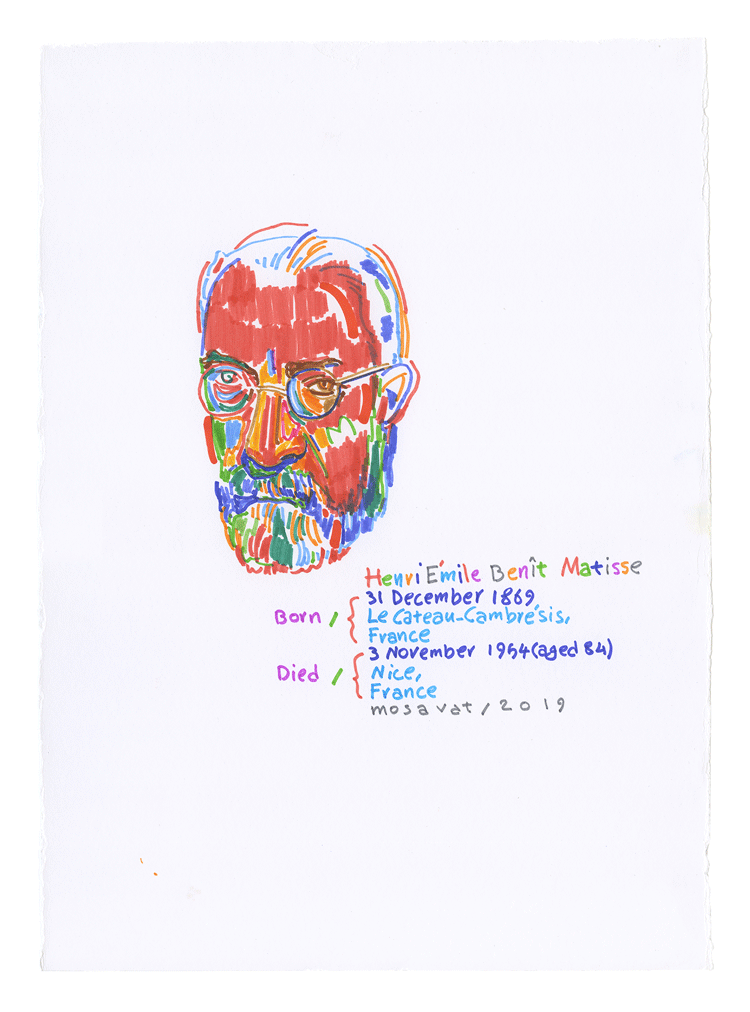 Henri Émile Benît Matisse
31 December 1869
Born / { Le Cateau-Cambrésis,
France
3 November 1954 (aged 84)
Died / { Nice,
France
mosavat / 2019